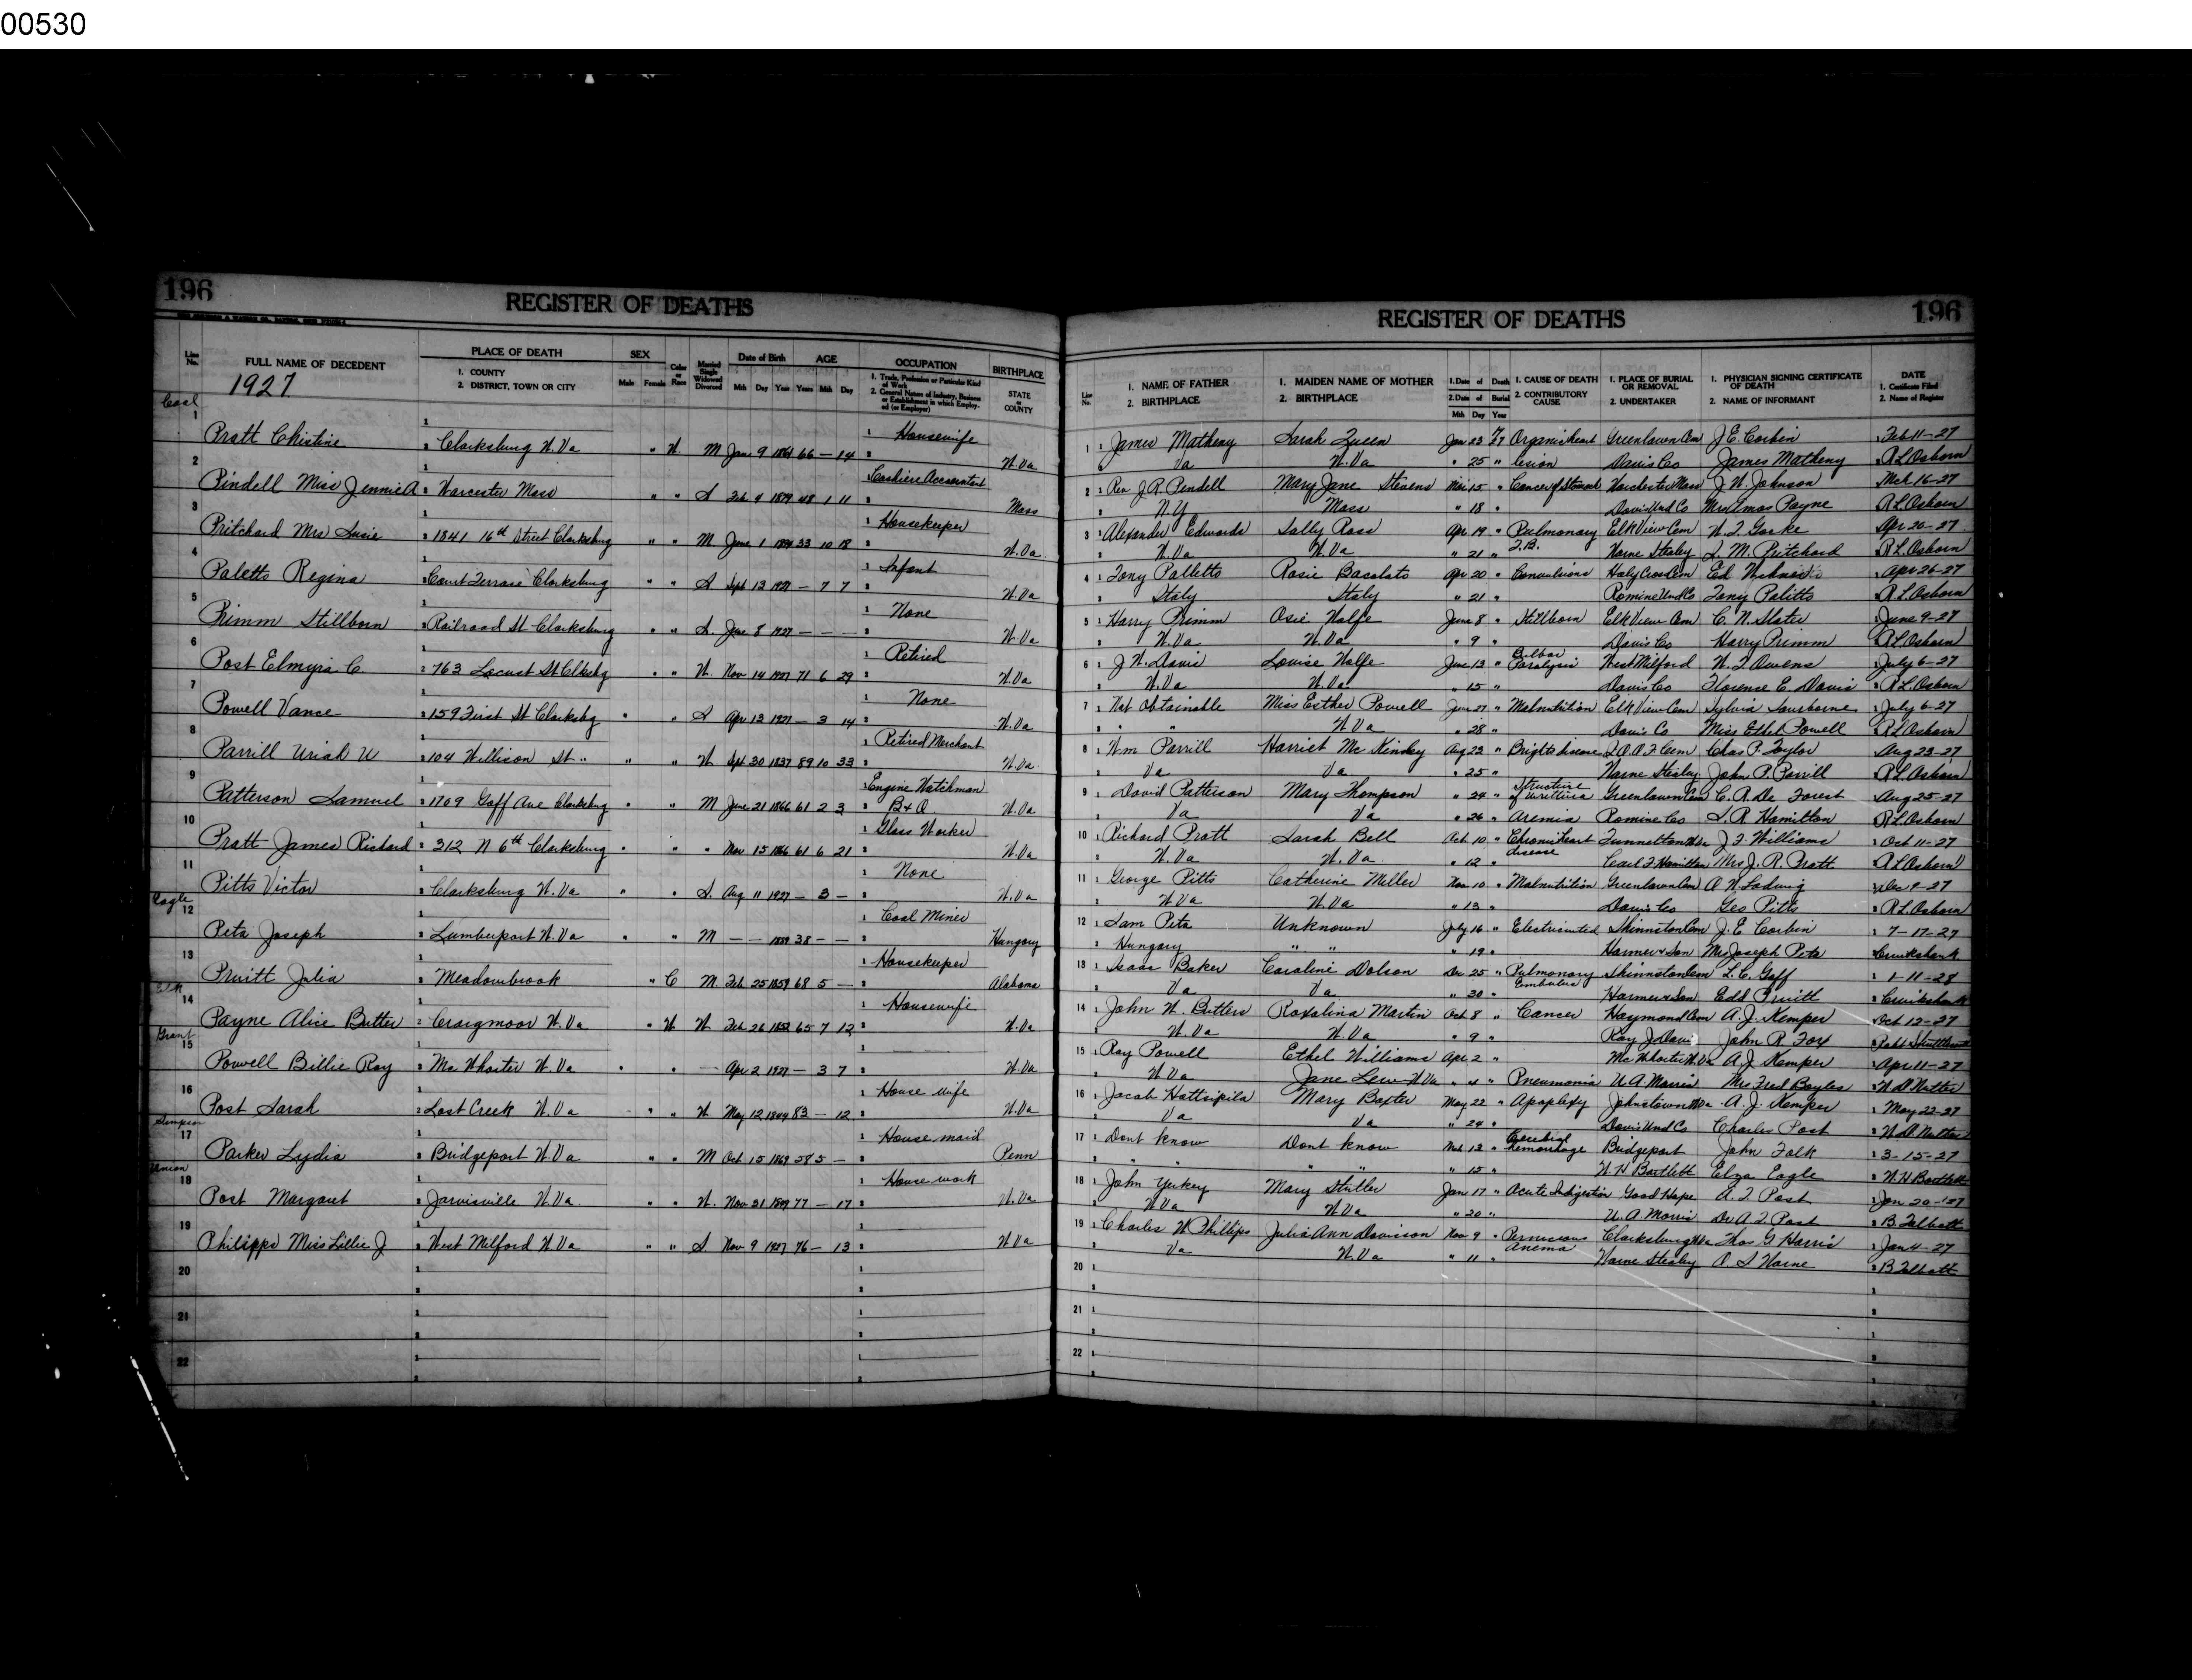 00530
196
REGISTER OF DEATHS
Line No.
FULL NAME OF DECEDENT
1927
PLACE OF DEATH
1. COUNTY
2. DISTRICT, TOWN OR CITY
SEX
Male Female
Color or Race
Married Single Widowed Divorced
Date of Birth
Mth Day Year
AGE
Years Mth Day
OCCUPATION
1. Trade, Profession or Particular Kind of Work
2. General Nature of Industry, Business or Establishment in which Employed (or Employer)
BIRTHPLACE
STATE or COUNTY
Coal
1 Pratt Christine Clarksburg W. Va " W. M Jan 9 1861 66 — 14 Housewife W. Va
2 Pindell Miss Jennie A Worcester Mass " " S Feb 4 1879 48 1 11 Cashier Accountant Mass
3 Pritchard Mrs Susie 1841 16th Street Clarksburg " " M June 1 33 10 18 Housekeeper W. Va
4 Paletts Regina Court Terrace Clarksburg " " S Sept 13 7 7 Infant W. Va
5 Primm Stillborn Railroad St Clarksburg " " S. June 8 1927 — — — None W. Va
6 Post Elmyra C. 763 Locust St Clksbg " " W. Nov 14 1927 71 6 29 Retired W. Va
7 Powell Vance 159 First St Clarksbg " " S Apr 13 1927 — 3 14 None W. Va
8 Parrill Uriah U 104 Willison St " " " W Sept 30 1837 89 10 33 Retired Merchant W. Va.
9 Patterson Samuel 1709 Goff Ave Clarksbrg " " M June 21 1866 61 2 3 Engine Watchman B & O W. Va
10 Pratt James Richard 312 N 6th Clarksburg " " " Nov 15 1866 61 6 21 Glass Worker W. Va
11 Pitts Victor Clarksburg W. Va " " S. Aug 11 1927 — 3 — None W. Va
Eagle
12 Peta Joseph Lumberport W. Va " " M — — 1889 38 — — Coal Miner Hungary
13 Pruitt Julia Meadowbrook " C M Feb 25 1859 68 5 — Housekeeper Alabama
Elk
14 Payne Alice Butter Craigmoor W. Va " W W Feb 26 1852 65 7 12 Housewife W. Va
Grant
15 Powell Billie Roy Mc Whorter W. Va " " — Apr 2 1927 — 3 7 W. Va
16 Post Sarah Lost Creek W. Va " " W May 12 1844 83 — 12 House wife W. Va
Simpson
17 Parker Lydia Bridgeport W. Va " " M Oct 15 1869 58 5 — House maid Penn
Union
18 Post Margaret Jarvisville W. Va " " W. Nov 31 77 — 17 House work W. Va
19 Philipps Miss Lillie J West Milford W. Va " " S Nov 9 1927 76 — 13 W Va
20
21
22
196
REGISTER OF DEATHS
Line No.
1. NAME OF FATHER
2. BIRTHPLACE
1. MAIDEN NAME OF MOTHER
2. BIRTHPLACE
1. Date of Death
2. Date of Burial
Mth Day Year
1. CAUSE OF DEATH
2. CONTRIBUTORY CAUSE
1. PLACE OF BURIAL OR REMOVAL
2. UNDERTAKER
1. PHYSICIAN SIGNING CERTIFICATE OF DEATH
2. NAME OF INFORMANT
DATE
1. Certificate Filed
2. Name of Register
1 James Matheny Sarah Queen Jan 23 27 Organic heart Greenlawn Cem J. E. Corbin Feb 11-27
Va W. Va " 25 " lesion Davis Co James Matheny R L Osborn
2 Rev J. R. Pindell Mary Jane Stevens Mar 15 " Cancer of Stomach Worchester Mass J. W. Johnson Mch 16-27
N. Y Mass " 18 " Davis Und Co Mrs Amos Payne R L Osborn
3 Alexander Edwards Sally Ross Apr 19 " Pulmonary Elk View Cem Apr 20-27
W. Va W. Va " 21 " T. B. S. M. Pritchard R L. Osborn
4 Tony Palletts Rosie Bacolats Apr 20 " Convulsions Holy Cross Cem Apr 26-27
Italy Italy " 21 " Romine Und Co Tony Palitts R L. Osborn
5 Harry Primm Osie Wolfe June 8 " Stillborn Elk View Cem C. N. Slater June 9-27
W. Va W. Va " 9 " Davis Co Harry Primm R L Osborn
6 J W. Davis Louise Wolfe June 13 " Bulbar Paralysis West Milford W. T Owens July 6-27
W. Va W. Va " 15 " Davis Co Florence E. Davis R L. Osborn
7 Not obtainable Miss Esther Powell June 27 " Malnutrition Elk View Cem July 6-27
" " W Va " 28 " Davis Co Miss Ethel Powell R L Osborn
8 Wm Parrill Harriet Mc Kinley Aug 23 " Brights disease I. O. O. F. Cem Chas P. Taylor Aug 23-27
Va Va " 25 " John P. Parrill R L. Osborn
9 David Patterson Mary Thompson " 24 " Structure of Urethra Greenlawn Cem C. A. De Forest Aug 25-27
Va Va " 26 " Uremia Romine Co S. R Hamilton R L. Osborn
10 Richard Pratt Sarah Bell Oct 10 " Chronic heart disease Tunnelton W. Va J. F Williams Oct 11-27
W. Va W. Va. " 12 " Carl F Hamilton Mrs J. R. Pratt R L Osborn
11 George Pitts Catherine Miller Nov 10 " Malnutrition Greenlawn Cem Dec 9-27
W Va W Va " 13 " Davis Co Geo Pitts R L. Osborn
12 Sam Peta Unknown July 16 " Electricuted Shinnston Cem J. E. Corbin 7-17-27
Hungary " " " 19 " Harmer & Son Mrs Joseph Peta Cruikshank
13 Isaac Baker Caroline Dolson De 25 " Pulmonary Embolus Shinnston Cem L. C. Goff 1-11-28
Va Va " 30 " Harmer & Son Edd Pruitt Cruikshank
14 John W. Butters Roxalina Martin Oct 8 " Cancer Haymond Cem A. J. Kemper Oct 12-27
W. Va W. Va " 9 " Ray J. Davis John R Fox
15 Roy Powell Ethel Williams Apr 2 " Mc Whorter W. Va A. J Kemper Apr 11-27
W Va Jane Lew W Va " 4 " Pneumonia U. A. Morris Mrs Fred Bayles W. D Nutter
16 Jacob Mary Baxter May 22 " Apoplexy Johnstown W Va A. J. Kemper May 22-27
Va Va " 24 " Davis Und Co Charles Post W. D. Nutter
17 Dont know Dont know Mch 13 " Cerebral hemorrhage Bridgeport John Folk 3-15-27
" " " " " 15 " W H Bartlett Elza Eagle W. H Bartlett
18 John Yerkey Mary Stutler Jan 17 " Acute Indigestion Good Hope A. T Post Jan 20-'27
W Va W Va " 20 " U. A. Morris Dr A T. Post B. Talbott
19 Charles W Phillips Julia Ann Davisson Nov 9 " Pernicious anema Clarksburg W. Va Thos G. Harris Jan 4-27
Va W. Va " 11 " B Talbott
20
21
22